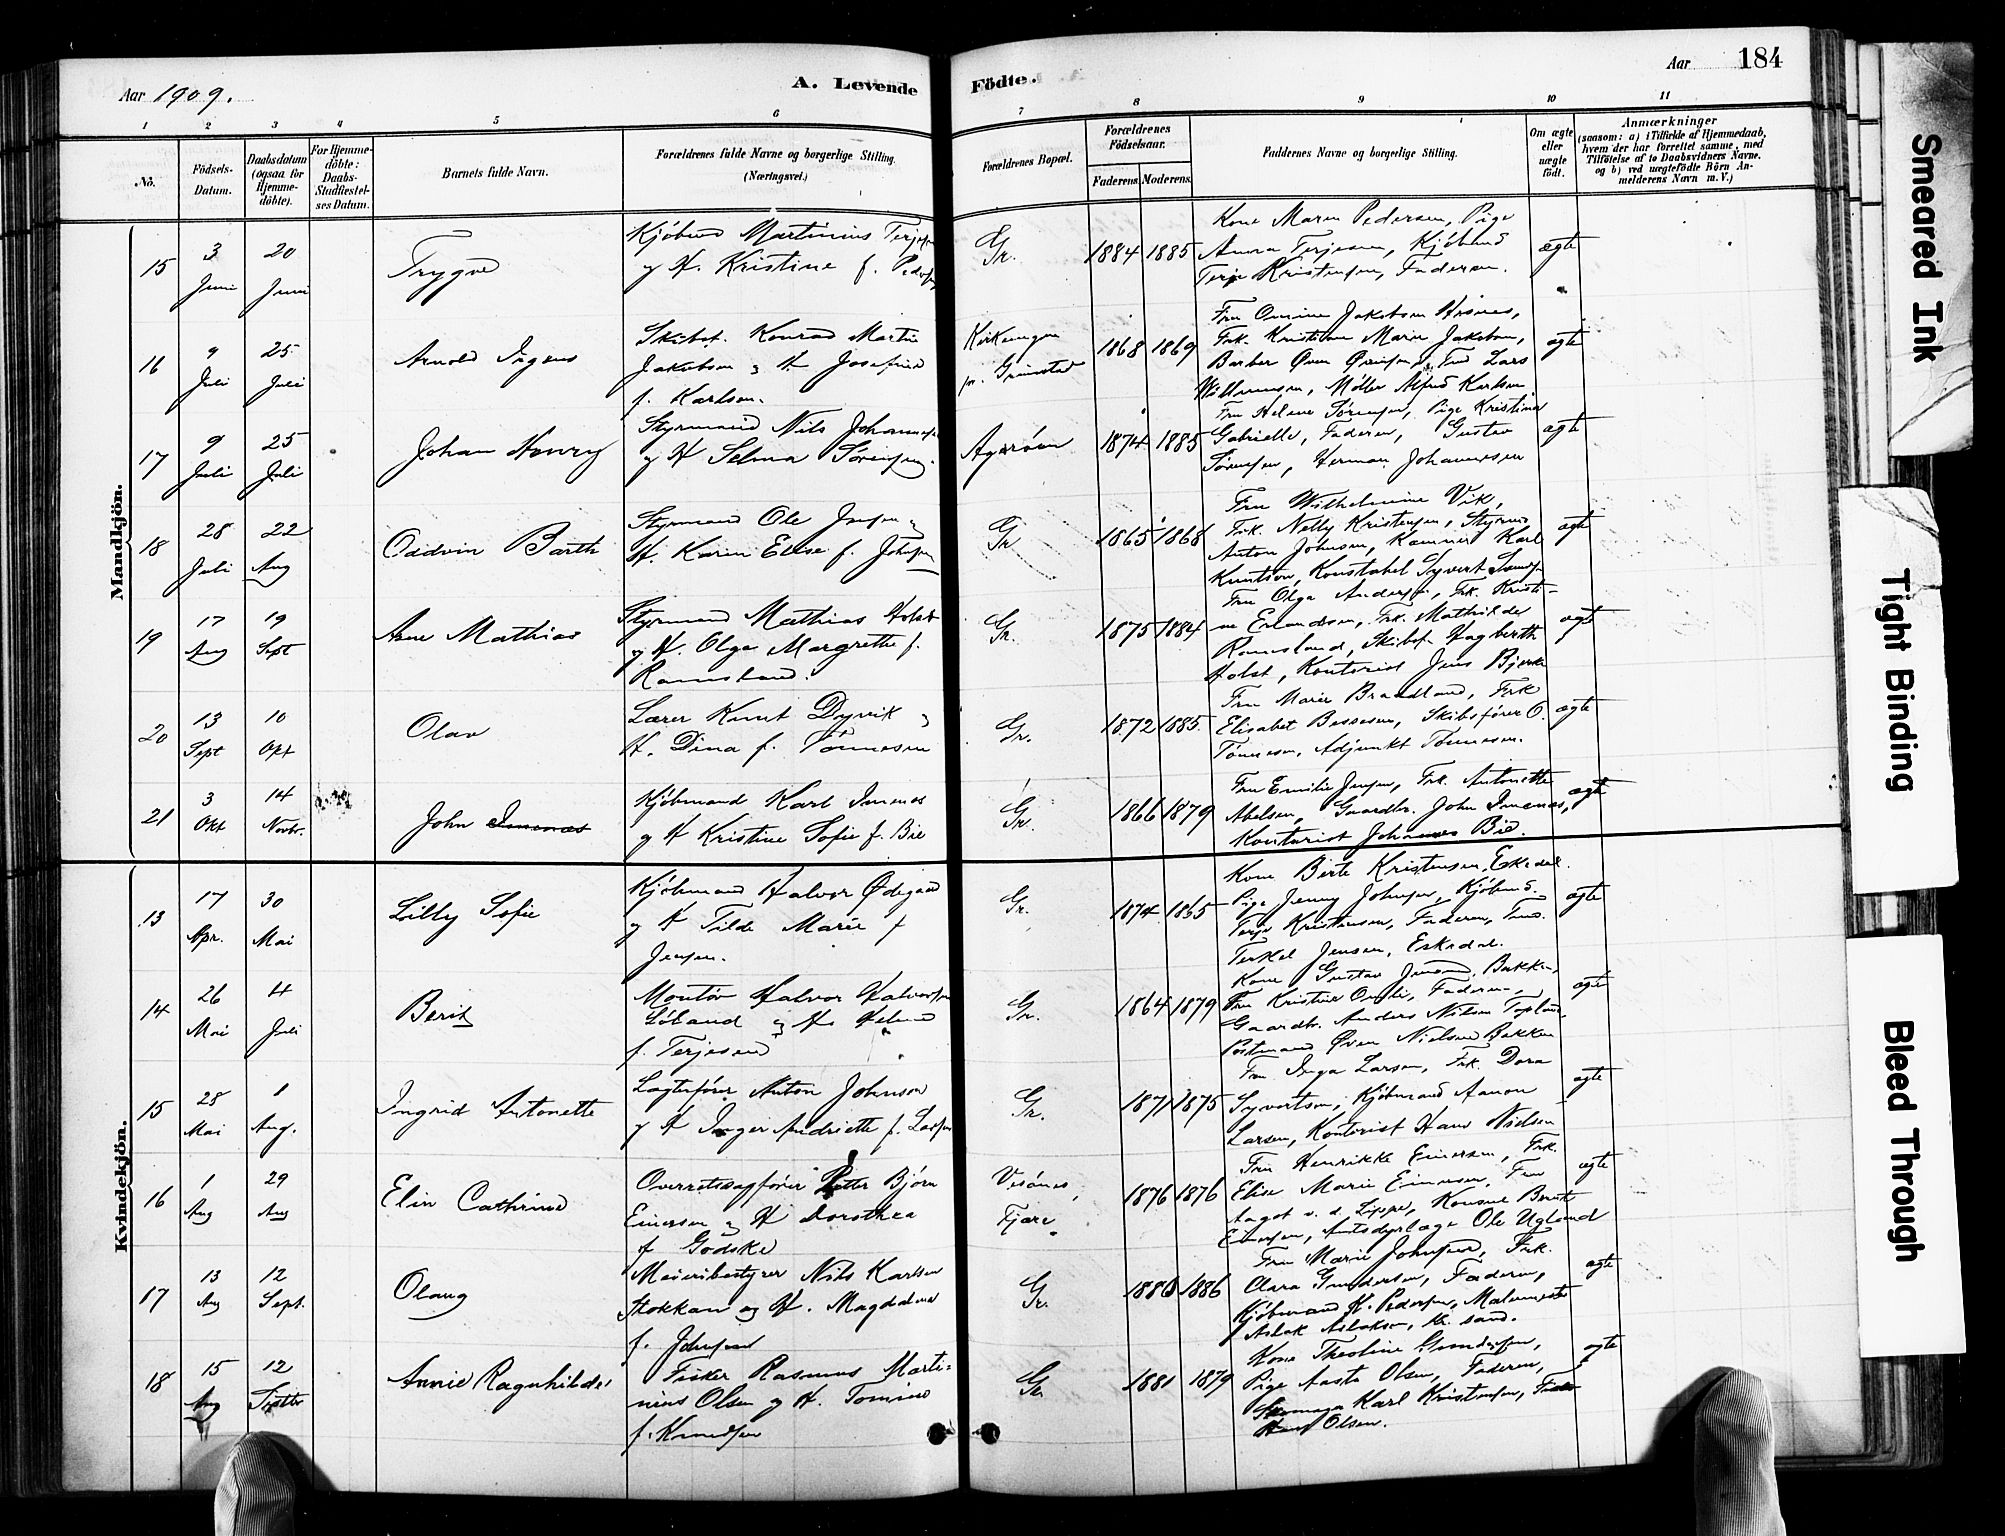 Aar 1909.
A. Levende
Födte.
Aar 184
1 2 3 4 5 6 7 8 9 10 11
No.
Födsels-
Datum.
Daabsdatum
(ogsaa for
Hjemme-
döbte).
For Hjemme-
döbte:
Daabs-
Stadfæstel-
ses Datum.
Barnets fulde Navn.
Forældrenes fulde Navne og borgerlige Stilling.
(Næringsvei.)
Forældrenes Bopæl.
Forældrenes
Födselsaar.
Faderens. Moderens.
Faddernes Navne og borgerlige Stilling.
Om ægte
eller
uægte
födt.
Anmærkninger
(saasom: a) i Tilfælde af Hjemmedaab,
hvem der har forrettet samme, med
Tilföielse af to Daabsvidners Navne.
og b) ved uægtefödte Börn An-
melderens Navn m. V.)
Mandkjön.
15
3
Juni
20
Juni
Trygve
Kjöbmd Martinius Terjesen
og H. Kristine f. Pedersen
Gr.
1884 1885
Kone Maren Pedersen, Pige
Anna Terjesen, Kjöbmd
Terje Kristensen, Faderen.
ægte
16
9
Juli
25
Juli
Arnold Ingvas
Skibst. Konrad Martin
Jakobsen og H Josefine
f. Karlsen.
Kirkeengen
pr. Grimstad
1868 1869
Fru Omine Jakobsen Hisnes,
Frk. Kristiane Marie Jakobsen,
Barber Sven Svensen, Tmd Lars
Willumsen, Møller Alfred Karlsen
ægte
17
9
Juli
25
Juli
Johan Henry
Styrmand Nils Johannesen
og H Selma Sørensen.
Agerøen
1874 1885
Fru Helene Sørensen, Pige Kristine
Gabrielle, Faderen, Gustav
Sørensen, Herman Johannesen
ægte
18
28
Juli
22
Aug
Oddvin Barth
Styrmand Ole Jensen og
H. Karen Elise f. Johnsen
Gr
1865 1868
Fru Wilhelmine Vik,
Frk. Nelly Kristensen, Styrmd
Anton Johnsen, Kammer Karl
Knutson, Konstabel Syvert
ægte
19
17
Aug
19
Sept
Arne Mathias
Styrmand Mathias Holst
og H. Olga Margrethe f.
Ramsland.
Gr.
1875 1884
Fru Olga Andersen, Frk. Kristi-
ne Erlandsen, Frk. Mathilde
Ramsland, Skibsf. Hagbarth
Holst, Kontorist Jens Bjerke
ægte
20
13
Sept
10
Okt
Olav
Lærer Knut Dyvik og
H. Dina f. Tønnesen
Gr.
1872 1885.
Fru Marie Braadland, Frk
Elisabet Bessesen, Skibsfører O.
Tønnesen, Adjunkt Tønnesen.
ægte
21
3
Okt
14
Novbr.
John Imenes
Kjöbmand Karl Imenes
og H Kristine Sofie f. Bie
Gr.
1866 1879
Fru Emilie Jensen, Frk. Antonette
Abelsen, Gaardbr. John Imenes,
Kontorist Johannes Bie.
ægte
Kvindekjön.
13
17
Apr.
30
Mai
Lilly Sofie
Kjöbmand Halvor Ødegaard
og H Tilde Marie f
Jensen.
Gr.
1874 1865
Kone Birte Kristensen, Eskedal.
Pige Jenny Johnsen, Kjöbmd.
Terje Kristensen, Faderen, Tmd.
Terkel Jensen, Eskedal.
ægte
14
26
Mai
4
Juli
Berit
Montør Halvor Halvorsen
Løland og H. Helene
f. Terjesen
Gr.
1864 1879
Kone Gustav Jensen, Bakken,
Fru Kristine Omli, Faderen,
Gaardbr. Anders Nilsen Topland,
Postmand Sven Nielsen Bakken
ægte
15
28
Mai
1
Aug.
Ingrid Antonette
Lugterfører Anton Johnsen
og H Inger Andriette f. Larsen
Gr.
1871 1875
Fru Inga Larsen, Frk. Dora
Syvertsen, Kjöbmand Aanon
Larsen, Kontorist Hans Nielsen
ægte
16
1
Aug
29
Aug
Elin Cathrine
Overretssagfører Petter Bjørn
Eimersen og H Dorothea
f. Gödske
Vesönes,
Fjære.
1876 1876
Fru Henrikke Eimersen, Frk.
Elise Marie Eimersen, Fru
Aagot v. d. Lippe, Konsul Bernt
Eimersen, Amtsdyrlæge Ole Ugland
ægte
17
13
Aug
12
Sept.
Olaug
Meieribestyrer Nils Karlsen
Stokkan og H. Magdalene
f. Johnsen
Gr.
1886
Fru Marie Johnsen, Frk.
Clara Gundersen, Faderen,
Kjöbmand K. Pedersen, Malermester
Aslak Aslaksen, Kr.sand.
ægte
18
15
Aug
12
Annie Ragnhilde
Fisker Rasmus Marti-
nius Olsen og H. Tomine
f. Knudsen
Gr.
1881 1879
Kone Theoline Gundersen,
Pige Aasta Olsen, Faderen,
Karl Kristensen,
Olsen.
ægte
Smeared Ink
Tight Binding
Bleed Through